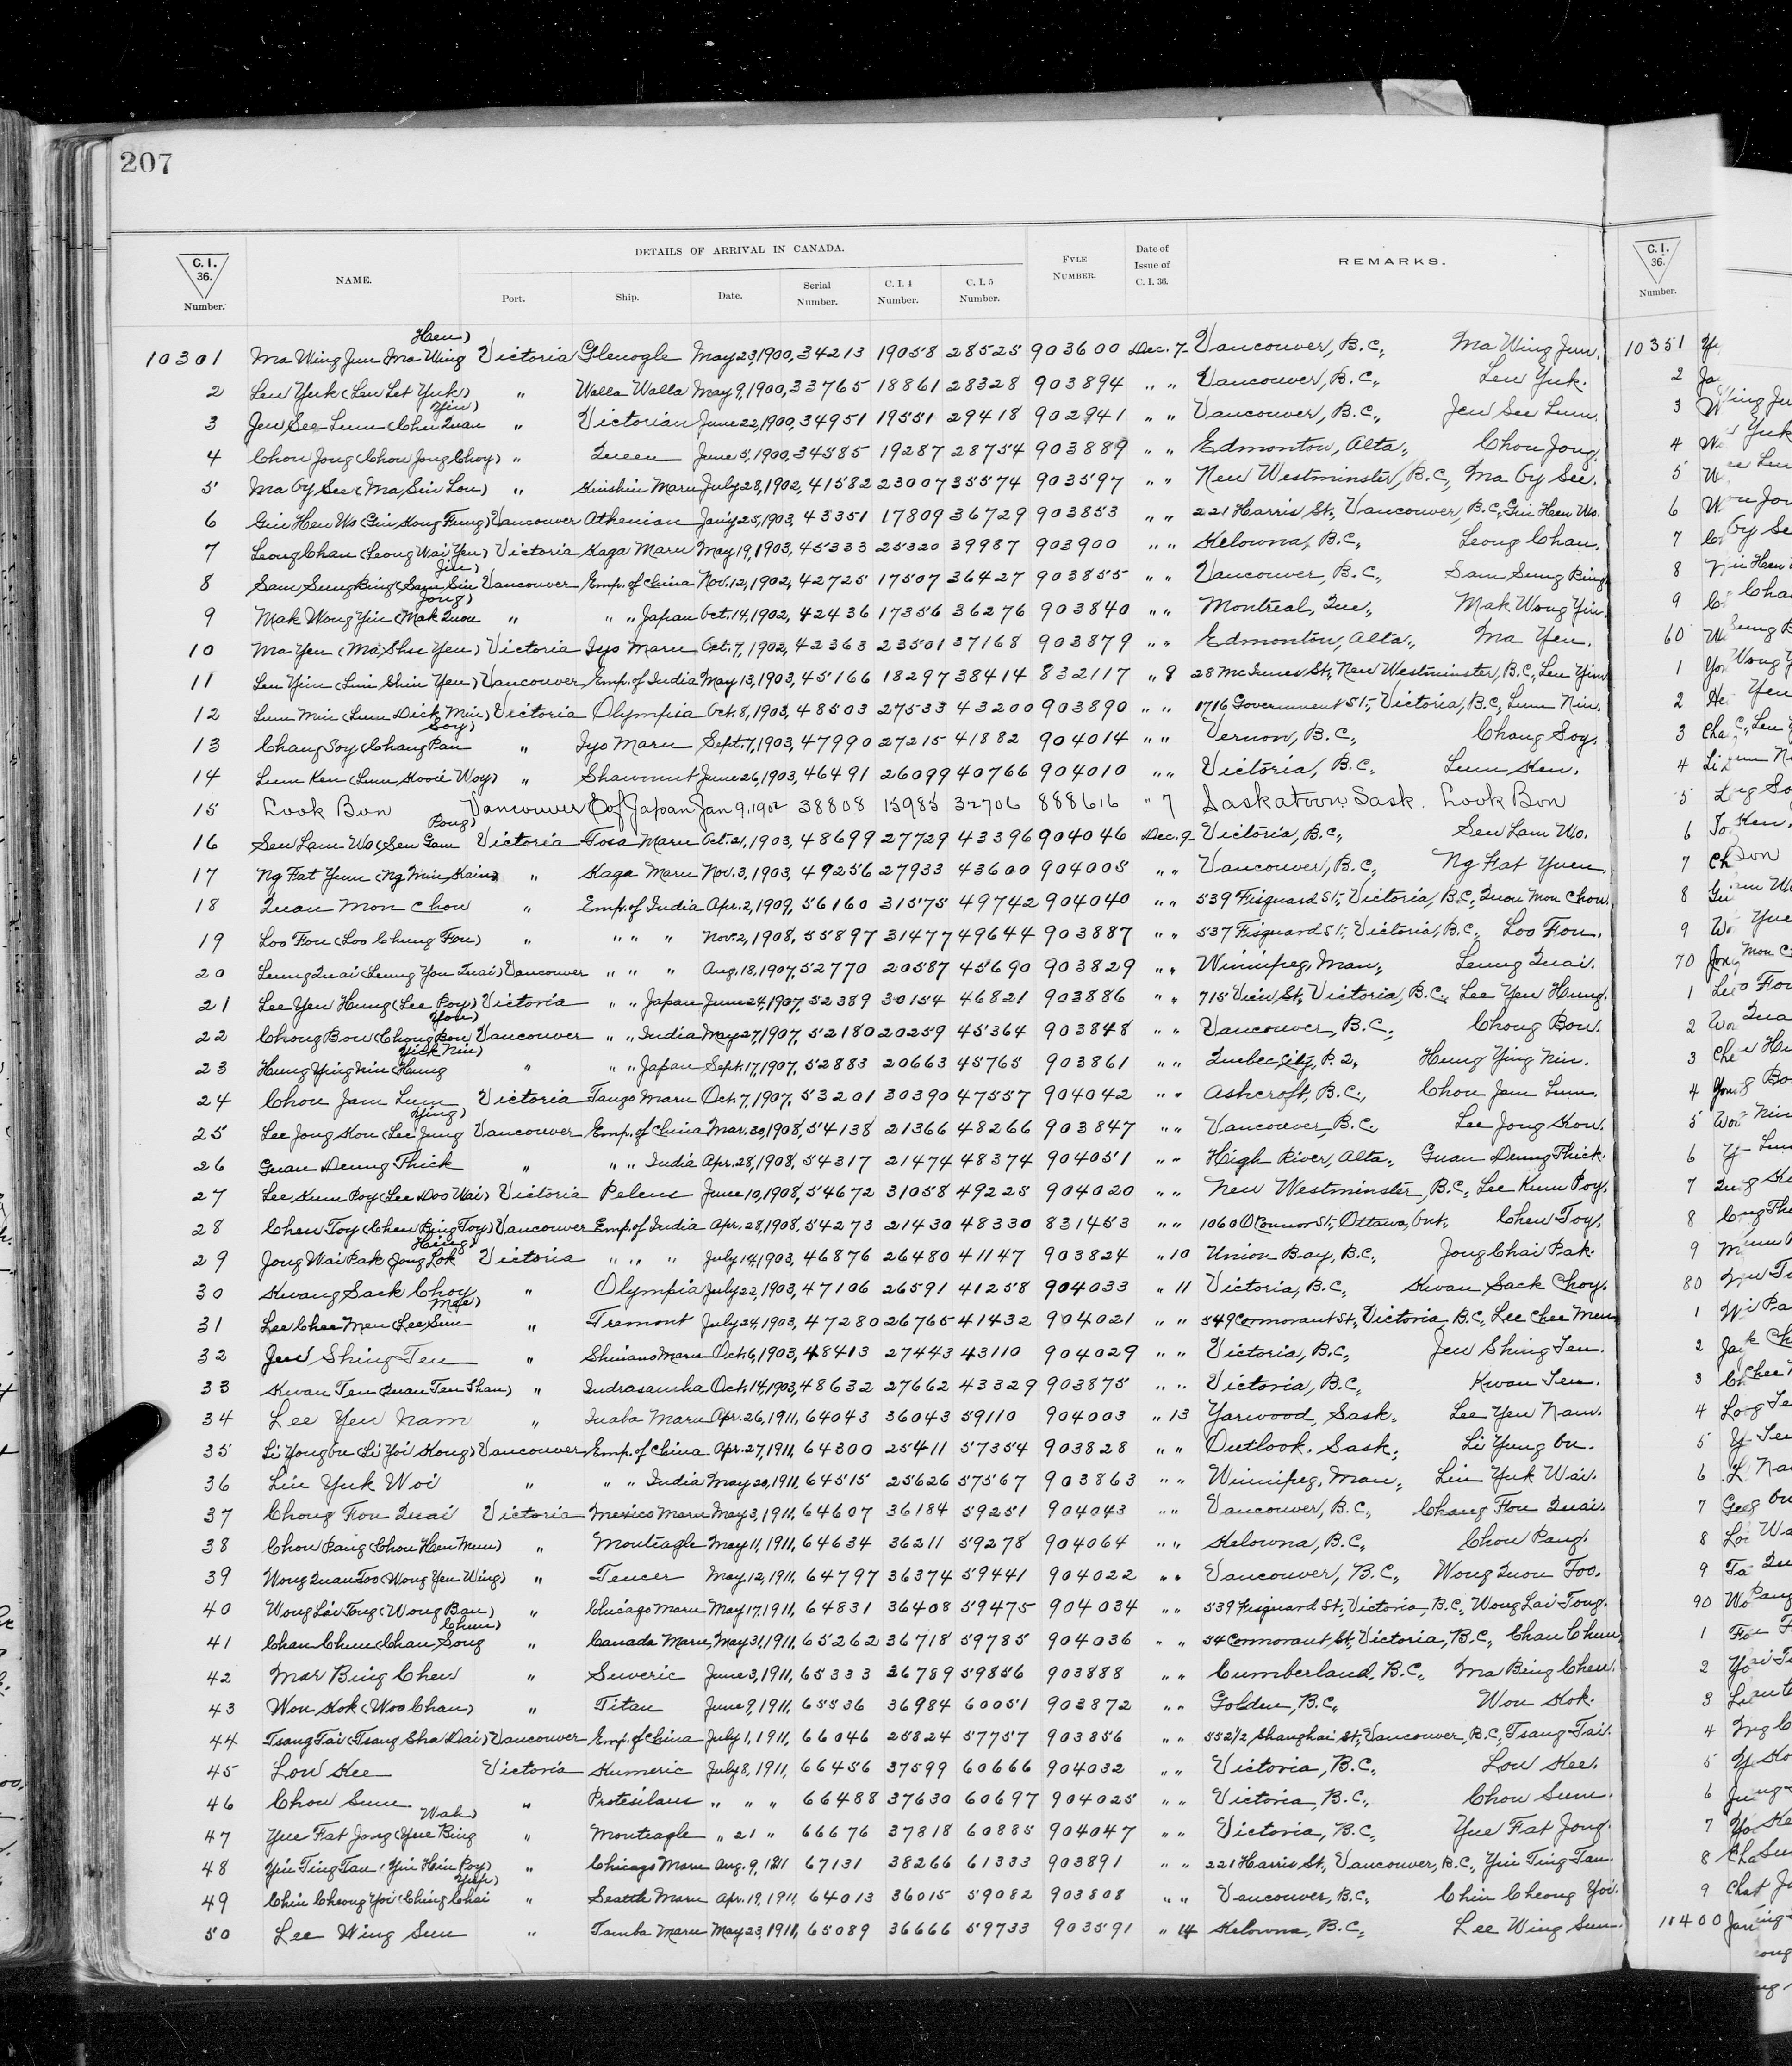 207
C. I. 36. Number. NAME. DETAILS OF ARRIVAL IN CANADA. Port. Ship. Date. Serial Number. C. I. 4 Number. C. I. 5 Number. FYLE NUMBER. Date of Issue of C. I. 36. REMARKS. C. I. 36. Number.
10301 Ma Wing Jun Ma Wing Hen) Victoria Glenogle May 23, 1900, 34213 19058 28525 903600 Dec. 7 Vancouver, B.C., Ma Wing Jun. 10351
2 Leu Yuk (Leu Let Yuk) " Walla Walla May 9, 1900, 33765 18861 28328 903894 " " Vancouver, B.C., Leu Yuk. 2
3 Jeu See Lum (Chu Quan Yin) " Victorian June 22, 1900, 34951 19551 29418 902941 " " Vancouver, B.C., Jeu See Lum. 3
4 Chou Jong (Chou Jong Choy) " Queen June 5, 1900, 34585 19287 28754 903889 " " Edmonton, Alta., Chou Jong. 4
5 Ma Oy See (Ma Sin Lou) " Kinshiu Maru July 28, 1902, 41582 23007 35574 903597 " " New Westminster, B.C., Ma Oy See. 5
6 Gin Hen Wo (Gin Kong Fung) Vancouver Athenian Jan'y 25, 1903, 43351 17809 36729 903853 " " 221 Harris St., Vancouver, B.C., Gin Hen Wo. 6
7 Leong Chan (Leong Wai Yen) Victoria Kaga Maru May 19, 1903, 45333 25320 39987 903900 " " Kelowna, B.C., Leong Chan. 7
8 Sam Sung Bing (Sam Sin Jin) Vancouver Emp. of China Nov. 12, 1902, 42725 17507 36427 903855 " " Vancouver, B.C., Sam Sung Bing 8
9 Mak Wong Yin (Mak Quon Jong) " " " Japan Oct. 14, 1902, 42436 17356 36276 903840 " " Montreal, Que., Mak Wong Yin 9
10 Ma Yen (Ma Shu Yen) Victoria Iyo Maru Oct. 7, 1902, 42363 23501 37168 903879 " " Edmonton, Alta., Ma Yen. 60
11 Leu Yim (Lim Shin Yen) Vancouver Emp. of India May 13, 1903, 45166 18297 38414 832117 " 8 28 McInnes St, New Westminster, B.C., Leu Yim 1
12 Lum Min (Lum Dick Min) Victoria Olympia Oct. 8, 1903, 48503 27533 43200 903890 " " 1716 Government St., Victoria, B.C., Lum Nin. 2
13 Chang Soy (Chang Pan Soy) " Iyo Maru Sept. 7, 1903, 47990 27215 41882 904014 " " Vernon, B.C., Chang Soy. 3
14 Lum Ken (Lum Kooie Woy) " Shawmut June 26, 1903, 46491 26099 40766 904010 " " Victoria, B.C., Lum Ken. 4
15 Look Bon Vancouver E of Japan Jan 9, 1902 38808 15985 32706 888616 " 7 Saskatoon Sask. Look Bon 5
16 Seu Lam Wo (Seu Gam Pong) Victoria Tosa Maru Oct. 21, 1903, 48699 27729 43396 904046 Dec. 9 Victoria, B.C., Seu Lam Wo. 6
17 Ng Fat Yuen (Ng Min Kain) " Kaga Maru Nov. 3, 1903, 49256 27933 43600 904005 " " Vancouver, B.C., Ng Fat Yuen. 7
18 Quan Mon Chou " Emp. of India Apr. 2, 1909, 56160 31575 49742 904040 " " 539 Fisguard St., Victoria, B.C., Quon Mon Chou. 8
19 Loo Fou (Loo Chung Fou) " " " " Nov. 2, 1908, 55897 31477 49644 903887 " " 537 Fisguard St., Victoria, B.C., Loo Fou. 9
20 Leung Quai (Leung You Quai) Vancouver " " " Aug. 18, 1907, 52770 20587 45690 903829 " " Winnipeg, Man., Leung Quai. 70
21 Lee Yen Hung (Lee Poy) Victoria " " Japan June 24, 1907, 52389 30154 46821 903886 " " 715 View St., Victoria, B.C., Lee Yen Hung. 1
22 Chong Bon (Chong Bon You) Vancouver " " India May 27, 1907, 52180 20259 45364 903848 " " Vancouver, B.C., Chong Bon. 2
23 Hung Ying Nin (Hung Yick Nin) " " " Japan Sept. 17, 1907, 52883 20663 45765 903861 " " Quebec City, P.Q., Hung Ying Nin. 3
24 Chou Jam Lum Victoria Tango Maru Oct. 7, 1907, 53201 30390 47557 904042 " " Ashcroft, B.C., Chou Jam Lum. 4
25 Lee Jong Kou (Lee Jung Ying) Vancouver Emp. of China Mar. 30, 1908, 54138 21366 48266 903847 " " Vancouver, B.C., Lee Jong Kou. 5
26 Guan Deung Thick " " " India Apr. 28, 1908, 54317 21474 48374 904051 " " High River, Alta., Guan Deung Thick. 6
27 Lee Kum Poy (Lee Doo Wai) Victoria Peleus June 10, 1908, 54672 31058 49225 904020 " " New Westminster, B.C., Lee Kum Poy. 7
28 Cheu Toy (Cheu Bing Toy) Vancouver Emp. of India Apr. 28, 1908, 54273 21430 48330 831453 " " 1060 O'Connor St., Ottawa, Ont., Cheu Toy. 8
29 Jong Wai Pak (Jong Lok Hing) Victoria " " " July 14, 1903, 46876 26480 41147 903824 " 10 Union Bay, B.C., Jong Chai Pak. 9
30 Kwang Sack Choy " Olympia July 22, 1903, 47106 26591 41258 904033 " 11 Victoria, B.C., Kwan Sack Choy. 80
31 Lee Chee Men (Lee Sun Mee) " Tremont July 24, 1903, 47280 26765 41432 904021 " " 549 Cormorant St., Victoria, B.C., Lee Chee Men 1
32 Jeu Shing Ten " Shinano Maru Oct. 6, 1903, 48413 27443 43110 904029 " " Victoria, B.C., Jeu Shing Ten. 2
33 Kwan Ten (Quan Ten Shan) " Indrasamha Oct. 14, 1903, 48632 27662 43329 903875 " " Victoria, B.C., Kwan Ten. 3
34 Lee Yen Nam " Inaba Maru Apr. 26, 1911, 64043 36043 59110 904003 " 13 Yarwood, Sask., Lee Yen Nam. 4
35 Li Yong On (Li Yoi Kong) Vancouver Emp. of China Apr. 27, 1911, 64300 25411 57354 903828 " " Outlook, Sask., Li Yung On. 5
36 Lin Yuk Woi " " " India May 20, 1911, 64515 25626 57567 903863 " " Winnipeg, Man., Lin Yuk Wai. 6
37 Chong Fou Quai Victoria Mexico Maru May 3, 1911, 64607 36184 59251 904043 " " Vancouver, B.C., Chang Fou Quai. 7
38 Chou Pang (Chou Hen Mun) " Monteagle May 11, 1911, 64634 36211 59278 904064 " " Kelowna, B.C., Chou Pang. 8
39 Wong Quan Foo (Wong Yen Wing) " Teucer May 12, 1911, 64797 36374 59441 904022 " " Vancouver, B.C., Wong Quon Foo. 9
40 Wong Lai Tong (Wong Ban) " Chicago Maru May 17, 1911, 64831 36408 59475 904034 " " 539 Fisguard St., Victoria, B.C., Wong Lai Tong. 90
41 Chan Chun (Chan Song Chun) " Canada Maru May 31, 1911, 65262 36718 59785 904036 " " 54 Cormorant St., Victoria, B.C., Chan Chun 1
42 Mar Bing Chew " Suveric June 3, 1911, 65333 36789 59856 903888 " " Cumberland, B.C., Ma Bing Cheu. 2
43 Wou Kok (Woo Chan) " Titan June 9, 1911, 65536 36984 60051 903872 " " Golden, B.C., Wou Kok. 3
44 Tsang Tai (Tsang Sha Dai) Vancouver Emp. of China July 1, 1911, 66046 25824 57757 903856 " " 552 1/2 Shanghai St., Vancouver, B.C., Tsang Tai. 4
45 Lou Kee Victoria Kumeric July 8, 1911, 66456 37599 60666 904032 " " Victoria, B.C., Lou Kee. 5
46 Chou Sum " Protesilaus " " " 66488 37630 60697 904025 " " Victoria, B.C., Chou Sum. 6
47 Yue Fat Jong (Yue Bing Wah) " Monteagle " 21 " 66676 37818 60885 904047 " " Victoria, B.C., Yue Fat Jong. 7
48 Yin Ting Tan (Yin Hein Poy) " Chicago Maru Aug. 9, 1911 67131 38266 61333 903891 " " 221 Harris St., Vancouver, B.C., Yin Ting Tan. 8
49 Chin Cheong Yoi (Ching Chai Yip) " Seattle Maru Apr. 19, 1911, 64013 36015 59082 903808 " " Vancouver, B.C., Chin Cheong Yoi. 9
50 Lee Wing Sun " Tamba Maru May 23, 1911, 65089 36666 59733 903591 " 14 Kelowna, B.C., Lee Wing Sun. 10400